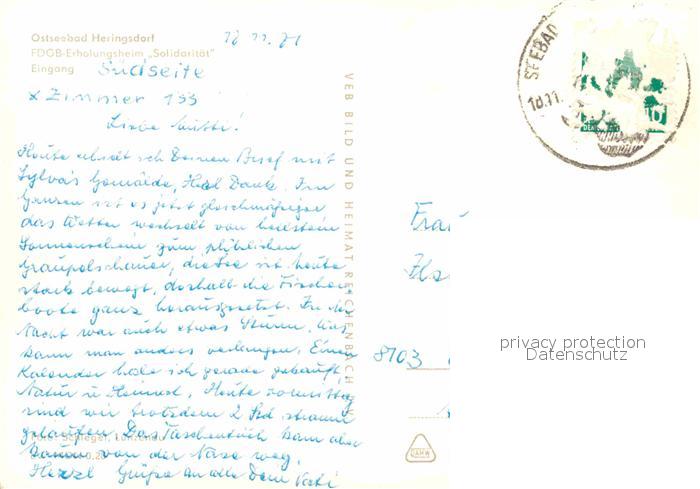 Ostseebad Heringsdorf
FDGB-Erholungsheim „Solidarität"
Eingang Südseite
18.11.71
x Zimmer 155
Liebe Mutti!
Heute erhielt ich Deinen Brief mit
Sylvas Gemälde, Hzl Dank. Im
Ganzen ist es jetzt gleichmäßiger
das Wetter wechselt von hellstem
Sonnenschein zum plötzlichen
Graupelschauer, die See ist heute
stark bewegt, deshalb die Fischer
boote ganz herausgesetzt. In der
Nacht war auch etwas Sturm, was
kann man anders verlangen. Einen
Kalender habe ich gerade gekauft
Natur u Heimat. Heute vormittag
sind wir trotzdem 2 Std stramm
gelaufen. Das Taschentuch kam aber
kaum von der Nase weg.
Herzl Grüße an alle Dein
VEB BILD UND HEIMAT REICHENBACH
SEEBAD
18.11.
Frau
8103
privacy protection
Datenschutz